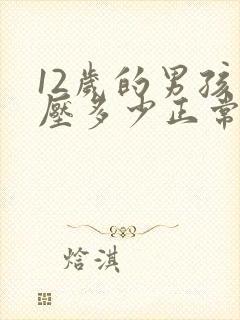 12歲的男孩
壓多少正常
焓淇